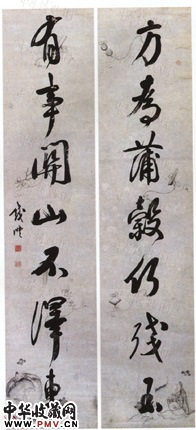 方為蒲穀仍殘玉
有事開山不澤車
錢灃
中华收藏网
www.PMV.CN